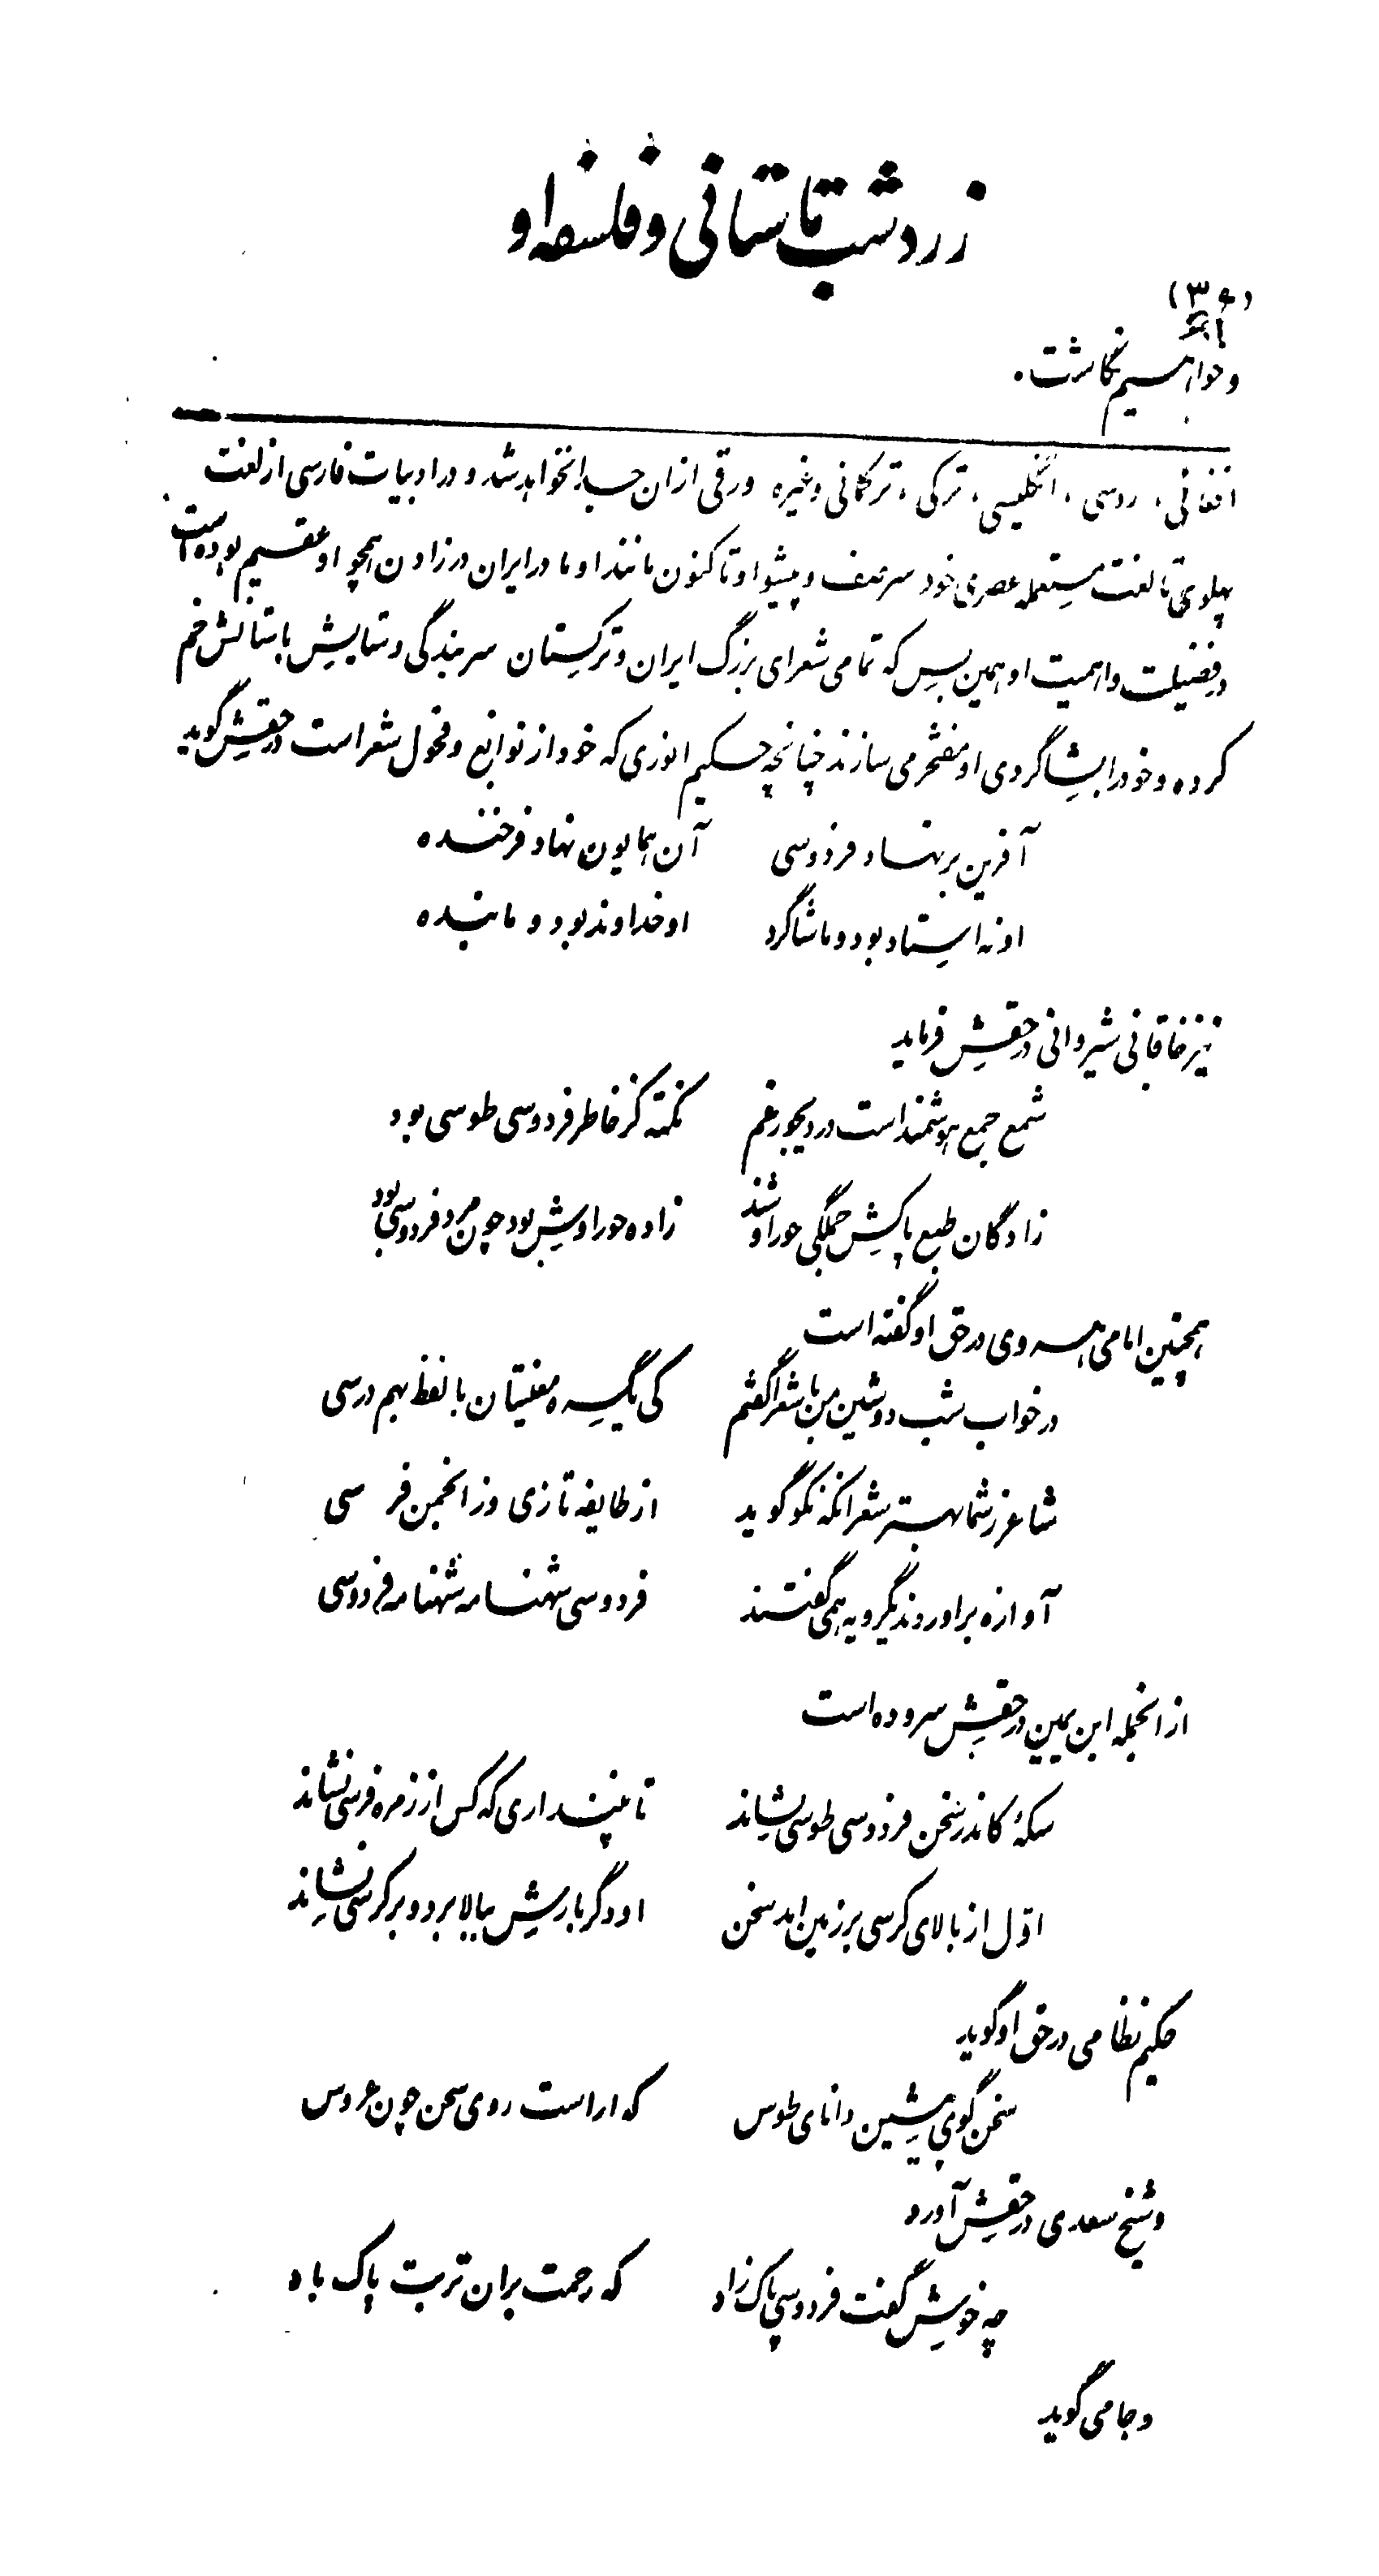 زردشت باستانی و فلسفه او
(۳۶)
و خواهیم نگاشت.
افغانی، روسی، انگلیسی، ترکی، ترکمانی وغیره ورقی ازان جدا نخواهد شد و در ادبیات فارسی از لغت
پهلوی تا لغت مستعمله عصری خود سر صف و پیشوا و تاکنون مانند او مادر ایران در زادن همچو او عقیم بوده است
در فضیلت و اهمیت او همین بس که تمامی شعرای بزرگ ایران و ترکستان سر بندگی و ستایش باستانش خم
کرده و خود را بشاگردی او مفتخر می سازند چنانچه حکیم انوری که خود از نوابع و فحول شعراست در حقش گوید
آفرین بر نهاد فردوسی آن همایون نهاد فرخنده
او نه استاد بود و ما شاگرد او خداوند بود و ما بنده
نیز خاقانی شیروانی در حقش فرماید
شمع جمع هوشمند است در دیجور غم نکته کز خاطر فردوسی طوسی بود
زادگان طبع پاکش جملگی حوراوشند زاده حوراوش بود چون مرد فردوسی بود
همچنین امامی هروی در حق او گفته است
در خواب شب دوشین من با شعرا گفتم کی یکسره مغنیتان با لفظ بهم درسی
شاعر ز شما بهتر شعر انکه نکو گوید از طایفه تازی وز انجمن فرسی
آوازه براوردند یگرویه همی گفتند فردوسی شهنامه شهنامه فردوسی
از انجمله ابن یمین در حقش سروده است
سکهٔ کاندر سخن فردوسی طوسی نشاند تا نپنداری که کس از زمره فرسی نشاند
اول از بالای کرسی بر زمین امد سخن او دگر بارش ببالا برد و بر کرسی نشاند
حکیم نظامی در حق او گوید
سخن گوی پیشین دانای طوس که اراست روی سخن چون عروس
و شیخ سعدی در حقش آورد
چه خوش گفت فردوسی پاک زاد که رحمت بران تربت پاک باد
و جامی گوید